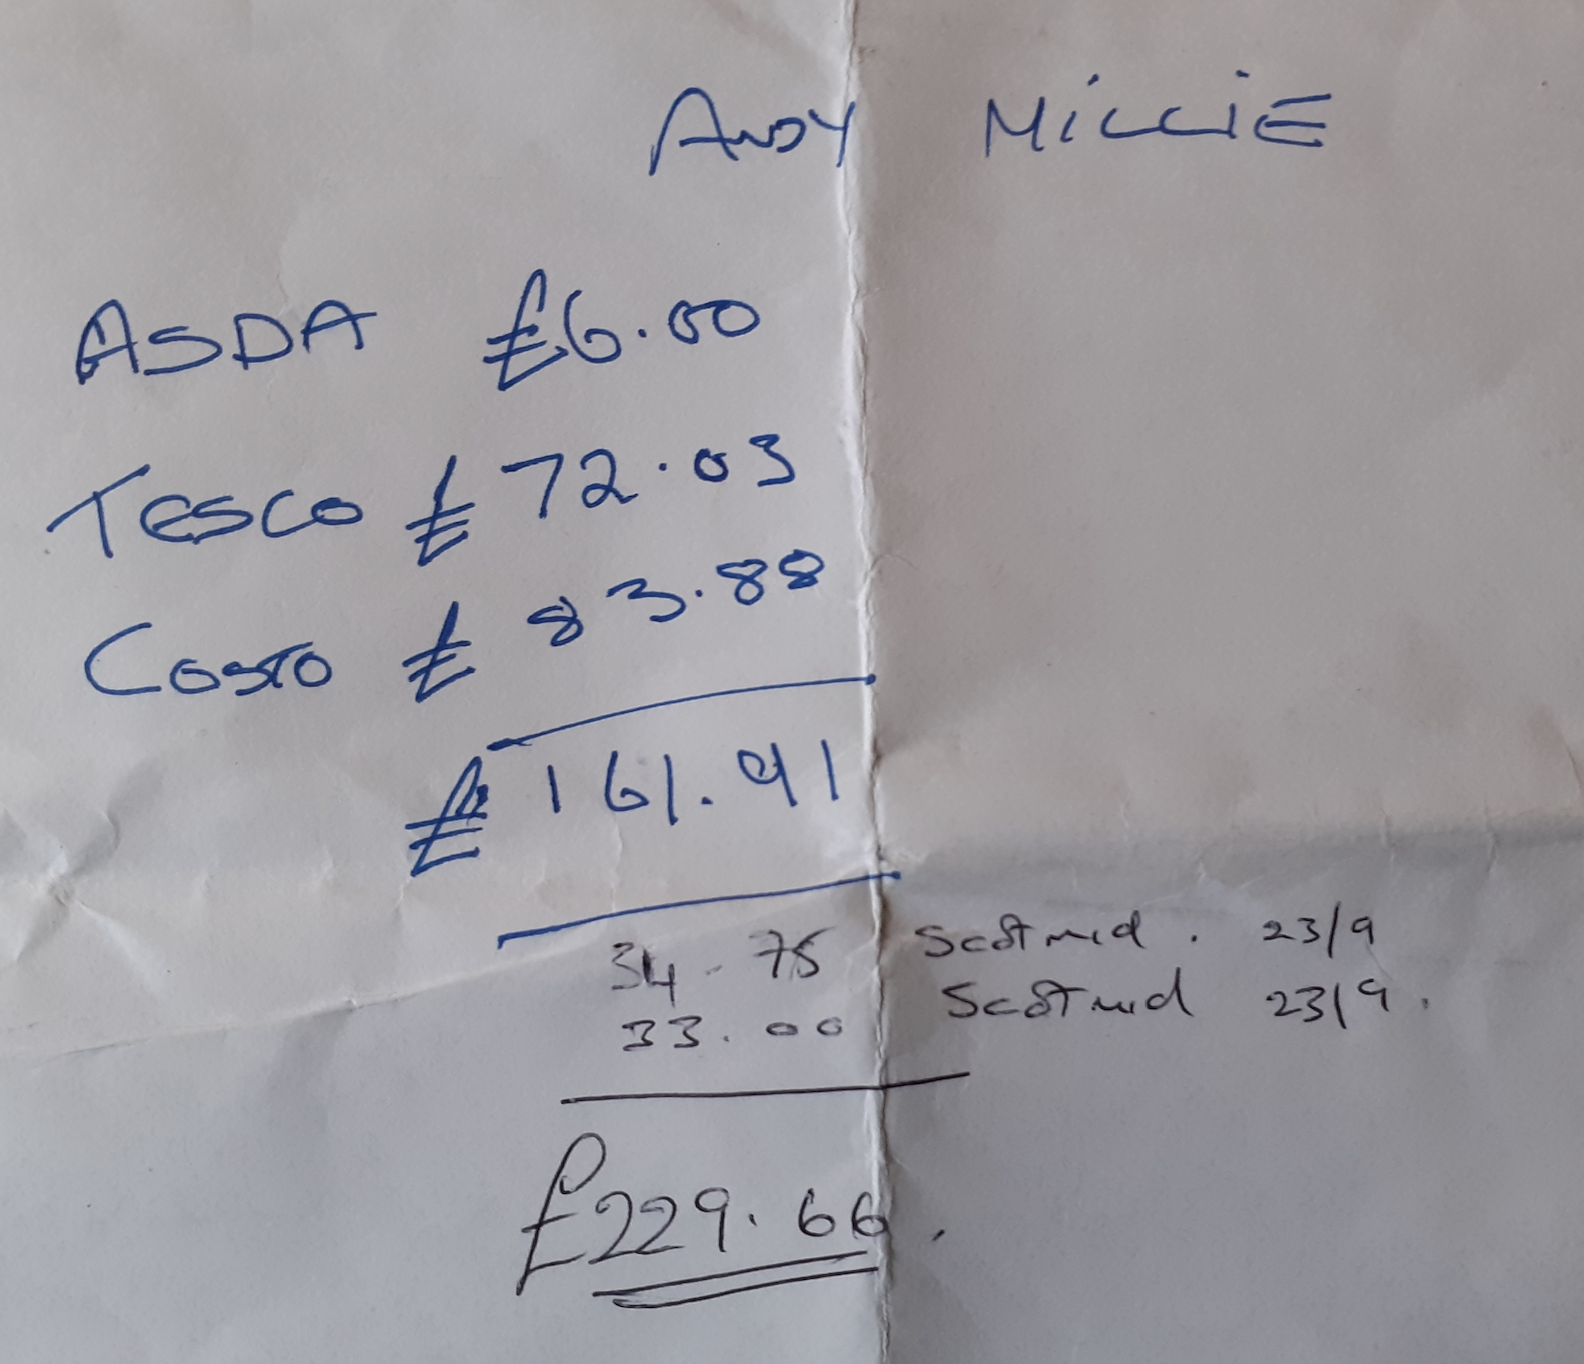 ANDY MILLIE
ASDA £6.00
TESCO £72.03
COSTO £83.88
£161.91
34-75 Scotmid. 23/9
33.00 Scotmid 23/9.
£229.66.